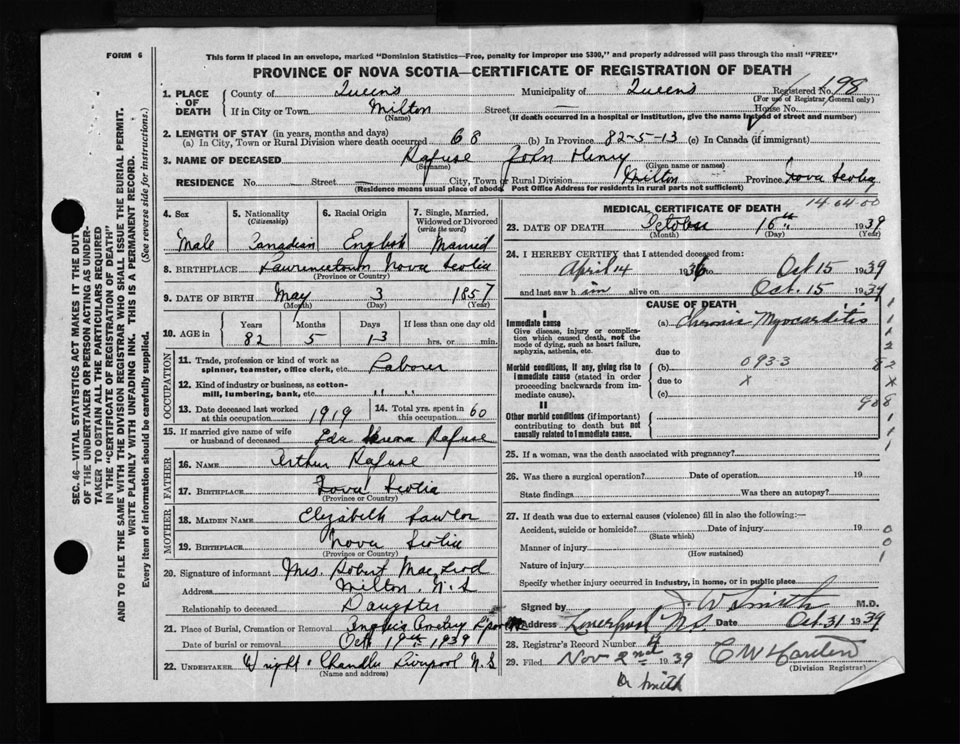 FORM 6
This form if placed in an envelope, marked "Dominion Statistics—Free, penalty for improper use $300," and properly addressed will pass through the mail "FREE"
PROVINCE OF NOVA SCOTIA—CERTIFICATE OF REGISTRATION OF DEATH
1. PLACE OF DEATH County of Queens Municipality of Queens Registered No. 198
(For use of Registrar General only)
If in City or Town Milton Street — House No.
(Name) (If death occurred in a hospital or institution, give the name instead of street and number)
2. LENGTH OF STAY (in years, months and days)
(a) In City, Town or Rural Division where death occurred 68 (b) In Province 82-5-13 (c) In Canada (if immigrant)
3. NAME OF DECEASED Rafuse John Henry
(Surname) (Given name or names)
RESIDENCE No. Street — City, Town or Rural Division Milton Province Nova Scotia
(Residence means usual place of abode. Post Office Address for residents in rural parts not sufficient)
4. Sex Male
5. Nationality (Citizenship) Canadian
6. Racial Origin English
7. Single, Married, Widowed or Divorced (write the word) Married
8. BIRTHPLACE Lawrencetown Nova Scotia
(Province or Country)
9. DATE OF BIRTH May 3 1857
(Month) (Day) (Year)
10. AGE in Years Months Days If less than one day
82 5 13 hrs. or min.
OCCUPATION
11. Trade, profession or kind of work as spinner, teamster, office clerk, etc. Laborer
12. Kind of industry or business, as cotton-mill, lumbering, bank, etc. "
13. Date deceased last worked at this occupation 1919 14. Total yrs. spent in this occupation 60
15. If married give name of wife or husband of deceased Rafuse
FATHER
16. NAME Arthur Rafuse
17. BIRTHPLACE Nova Scotia
(Province or Country)
MOTHER
18. MAIDEN NAME Elizabeth Lawlor
19. BIRTHPLACE Nova Scotia
(Province or Country)
20. Signature of informant Mrs. Robert MacLeod
Address Milton, N.S
Relationship to deceased Daughter
21. Place of Burial, Cremation or Removal
Date of burial or removal Oct 19th 1939
22. UNDERTAKER Wright & Chandler Liverpool N.S
(Name and address)
14.64.00
MEDICAL CERTIFICATE OF DEATH
23. DATE OF DEATH October 16th 1939
(Month) (Day) (Year)
24. I HEREBY CERTIFY that I attended deceased from:
April 14 1936 to Oct 15 1939
and last saw him alive on Oct. 15 1939
CAUSE OF DEATH
I
Immediate cause (a) Chronic Myocarditis
Give disease, injury or complication which caused death, not the mode of dying, such as heart failure, asphyxia, asthenia, etc.
due to
Morbid conditions, if any, giving rise to immediate cause (stated in order proceeding backwards from immediate cause). (b) 0933
due to x
(c)
II
Other morbid conditions (if important) contributing to death but not causally related to immediate cause.
25. If a woman, was the death associated with pregnancy?
26. Was there a surgical operation? Date of operation 19
State findings Was there an autopsy?
27. If death was due to external causes (violence) fill in also the following:—
Accident, suicide or homicide? Date of injury 19
(State which)
Manner of injury
(How sustained)
Nature of injury
Specify whether injury occurred in industry, in home, or in public place
Signed by J. W Smith M.D.
Address Liverpool N.S. Date Oct. 31 1939
28. Registrar's Record Number
29. Filed Nov 2nd 1939
(Division Registrar)
Dr Smith
SEC. 46—VITAL STATISTICS ACT MAKES IT THE DUTY
OF THE UNDERTAKER OR PERSON ACTING AS UNDER-
TAKER TO OBTAIN ALL THE PARTICULARS REQUIRED
IN THE "CERTIFICATE OF REGISTRATION OF DEATH"
AND TO FILE THE SAME WITH THE DIVISION REGISTRAR WHO SHALL ISSUE THE BURIAL PERMIT.
WRITE PLAINLY WITH UNFADING INK. THIS IS A PERMANENT RECORD.
Every item of information should be carefully supplied. (See reverse side for instructions.)